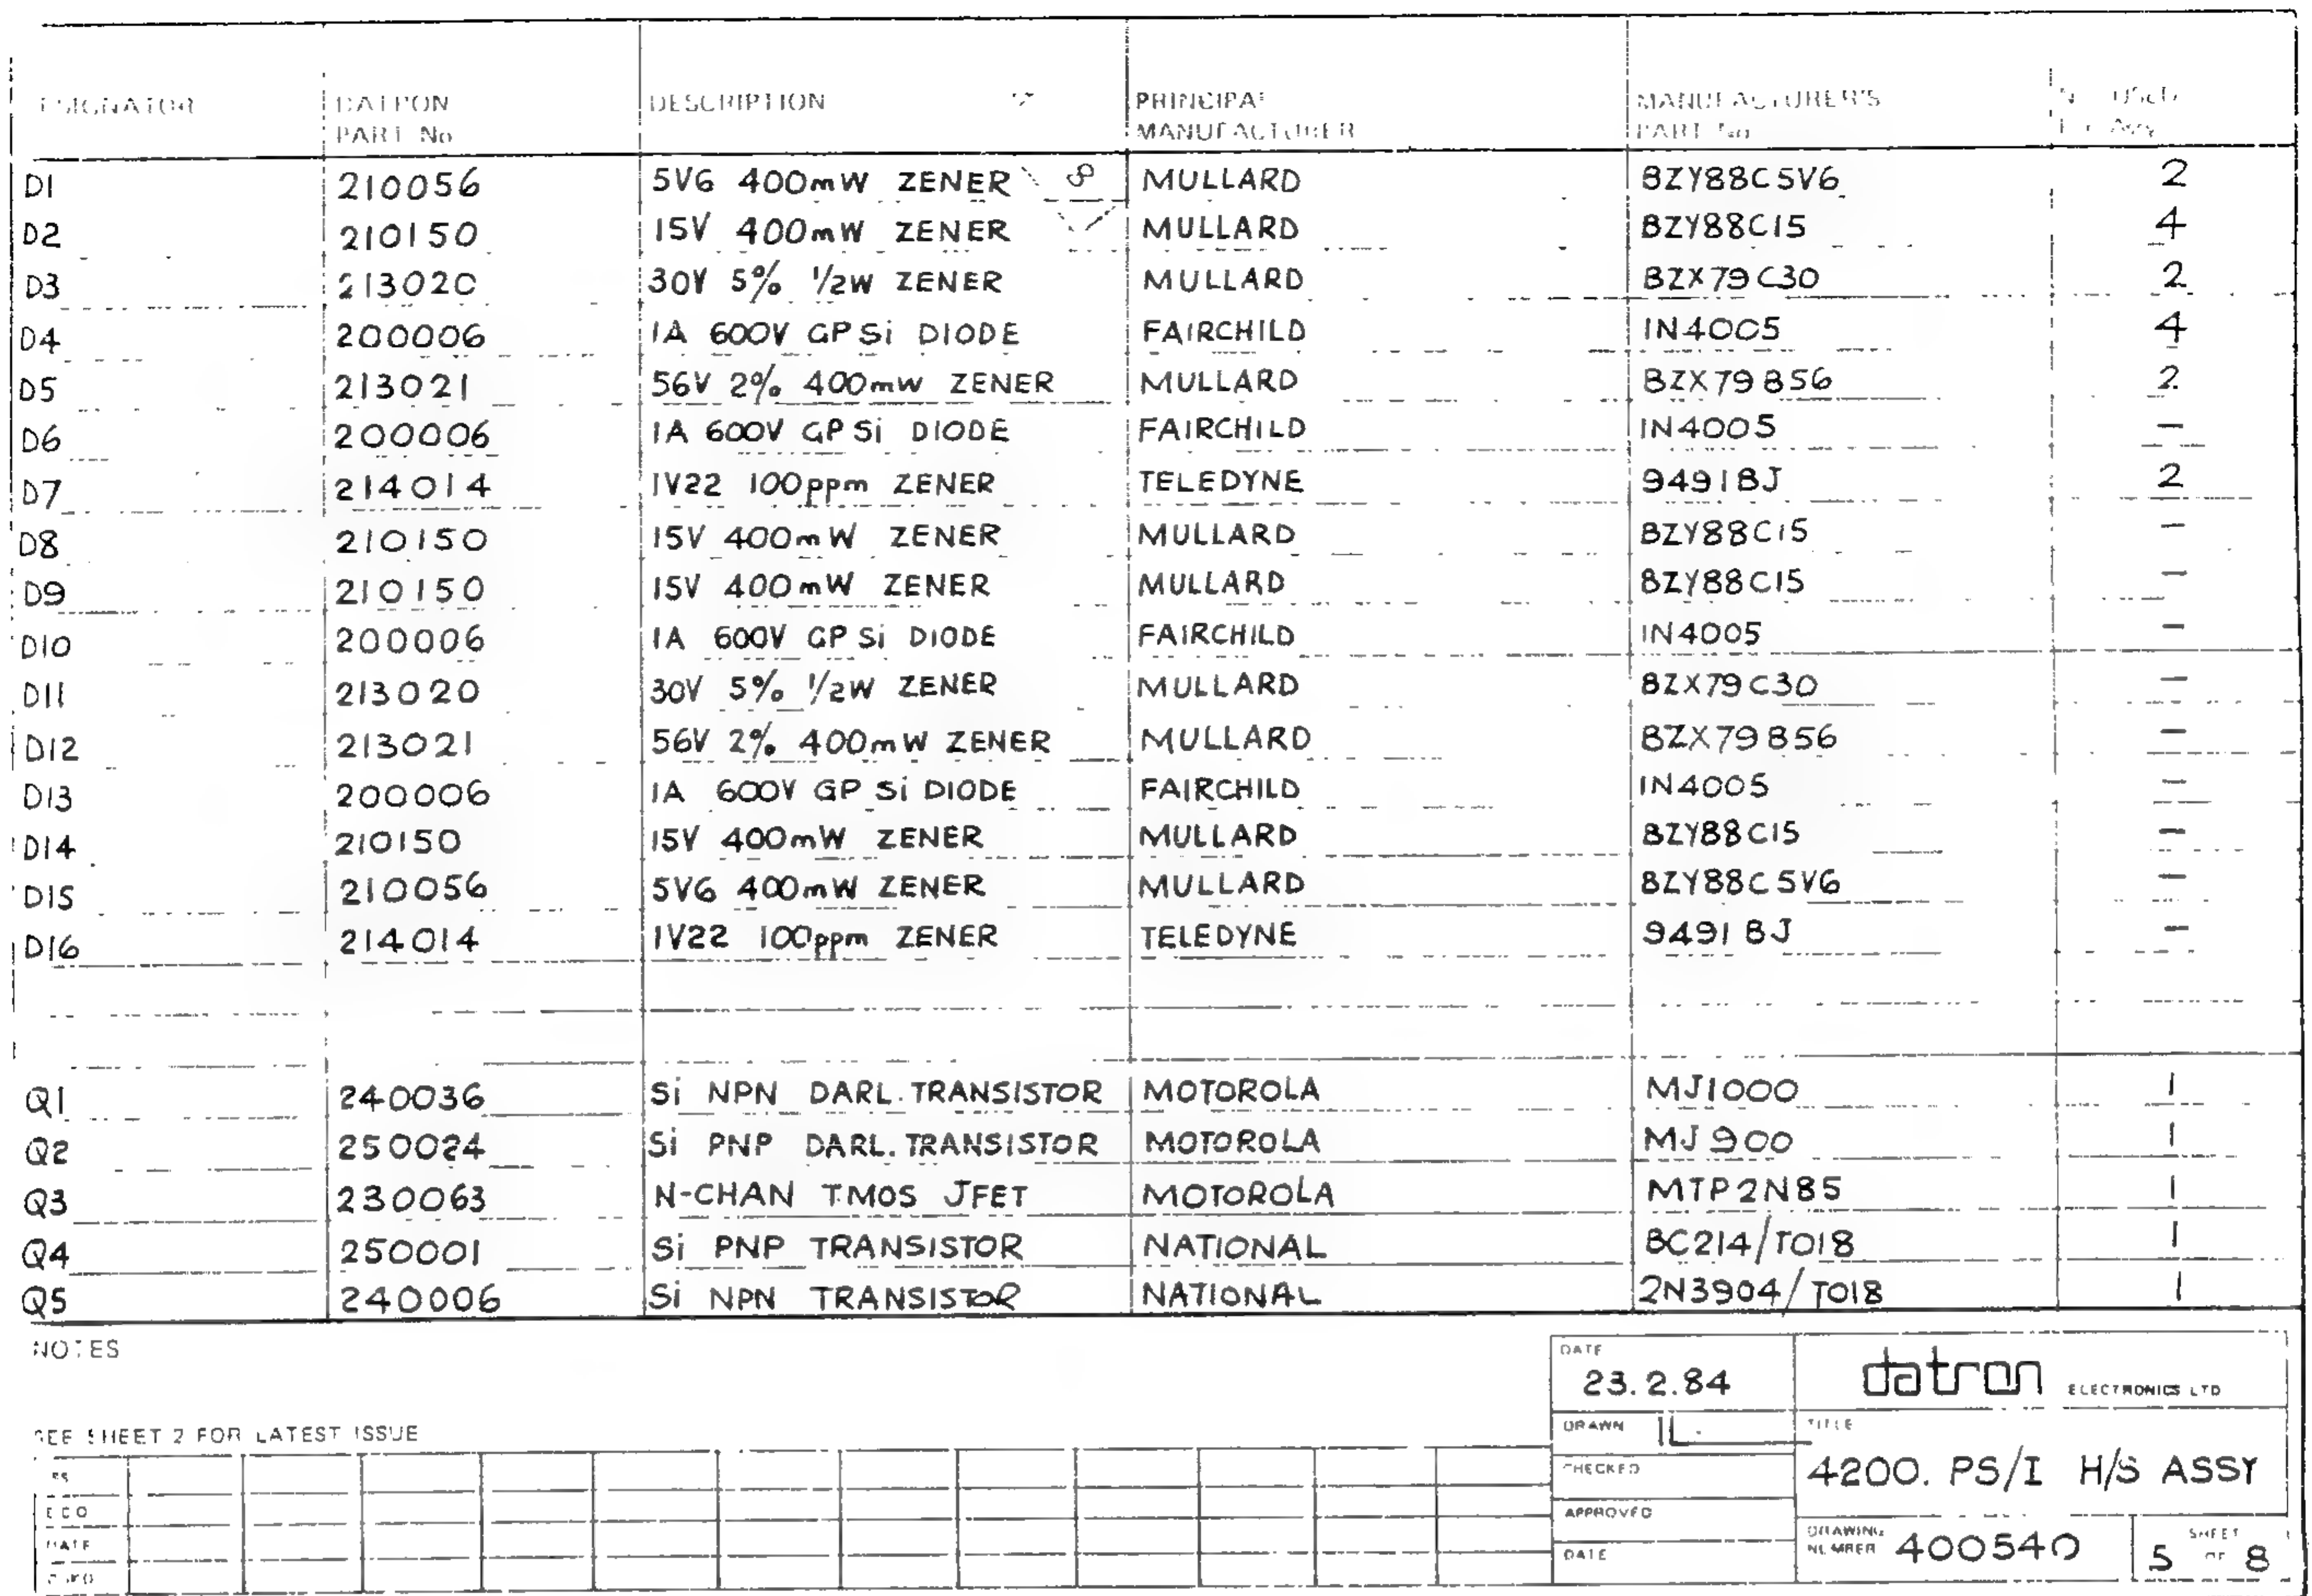 DESIGNATOR DATRON PART No DESCRIPTION PRINCIPAL MANUFACTURER MANUFACTURER'S PART No
D1 210056 5V6 400mW ZENER MULLARD BZY88C5V6 2
D2 210150 15V 400mW ZENER MULLARD BZY88C15 4
D3 213020 30V 5% 1/2W ZENER MULLARD BZX79C30 2
D4 200006 1A 600V GP Si DIODE FAIRCHILD 1N4005 4
D5 213021 56V 2% 400mW ZENER MULLARD BZX79B56 2
D6 200006 1A 600V GP Si DIODE FAIRCHILD 1N4005 —
D7 214014 1V22 100ppm ZENER TELEDYNE 9491BJ 2
D8 210150 15V 400mW ZENER MULLARD BZY88C15 —
D9 210150 15V 400mW ZENER MULLARD BZY88C15 —
D10 200006 1A 600V GP Si DIODE FAIRCHILD 1N4005 —
D11 213020 30V 5% 1/2W ZENER MULLARD BZX79C30 —
D12 213021 56V 2% 400mW ZENER MULLARD BZX79B56 —
D13 200006 1A 600V GP Si DIODE FAIRCHILD 1N4005 —
D14 210150 15V 400mW ZENER MULLARD BZY88C15 —
D15 210056 5V6 400mW ZENER MULLARD BZY88C5V6 —
D16 214014 1V22 100ppm ZENER TELEDYNE 9491BJ —
Q1 240036 Si NPN DARL. TRANSISTOR MOTOROLA MJ1000 1
Q2 250024 Si PNP DARL. TRANSISTOR MOTOROLA MJ900 1
Q3 230063 N-CHAN TMOS JFET MOTOROLA MTP2N85 1
Q4 250001 Si PNP TRANSISTOR NATIONAL BC214/TO18 1
Q5 240006 Si NPN TRANSISTOR NATIONAL 2N3904/TO18 1
NOTES
SEE SHEET 2 FOR LATEST ISSUE
ECO
DATE
DATE 23.2.84
DRAWN IL.
CHECKED
APPROVED
DATE
datron ELECTRONICS LTD
TITLE
4200. PS/I H/S ASSY
DRAWING NUMBER 400540
SHEET 5 OF 8